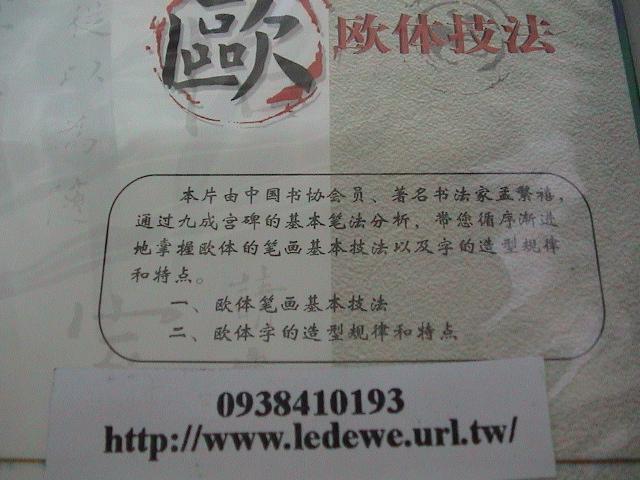 歐
欧体技法
本片由中国书协会员、著名书法家孟繁禧，
通过九成宫碑的基本笔法分析，带您循序渐进
地掌握欧体的笔画基本技法以及字的造型规律
和特点。
一、欧体笔画基本技法
二、欧体字的造型规律和特点
0938410193
http://www.ledewe.url.tw/